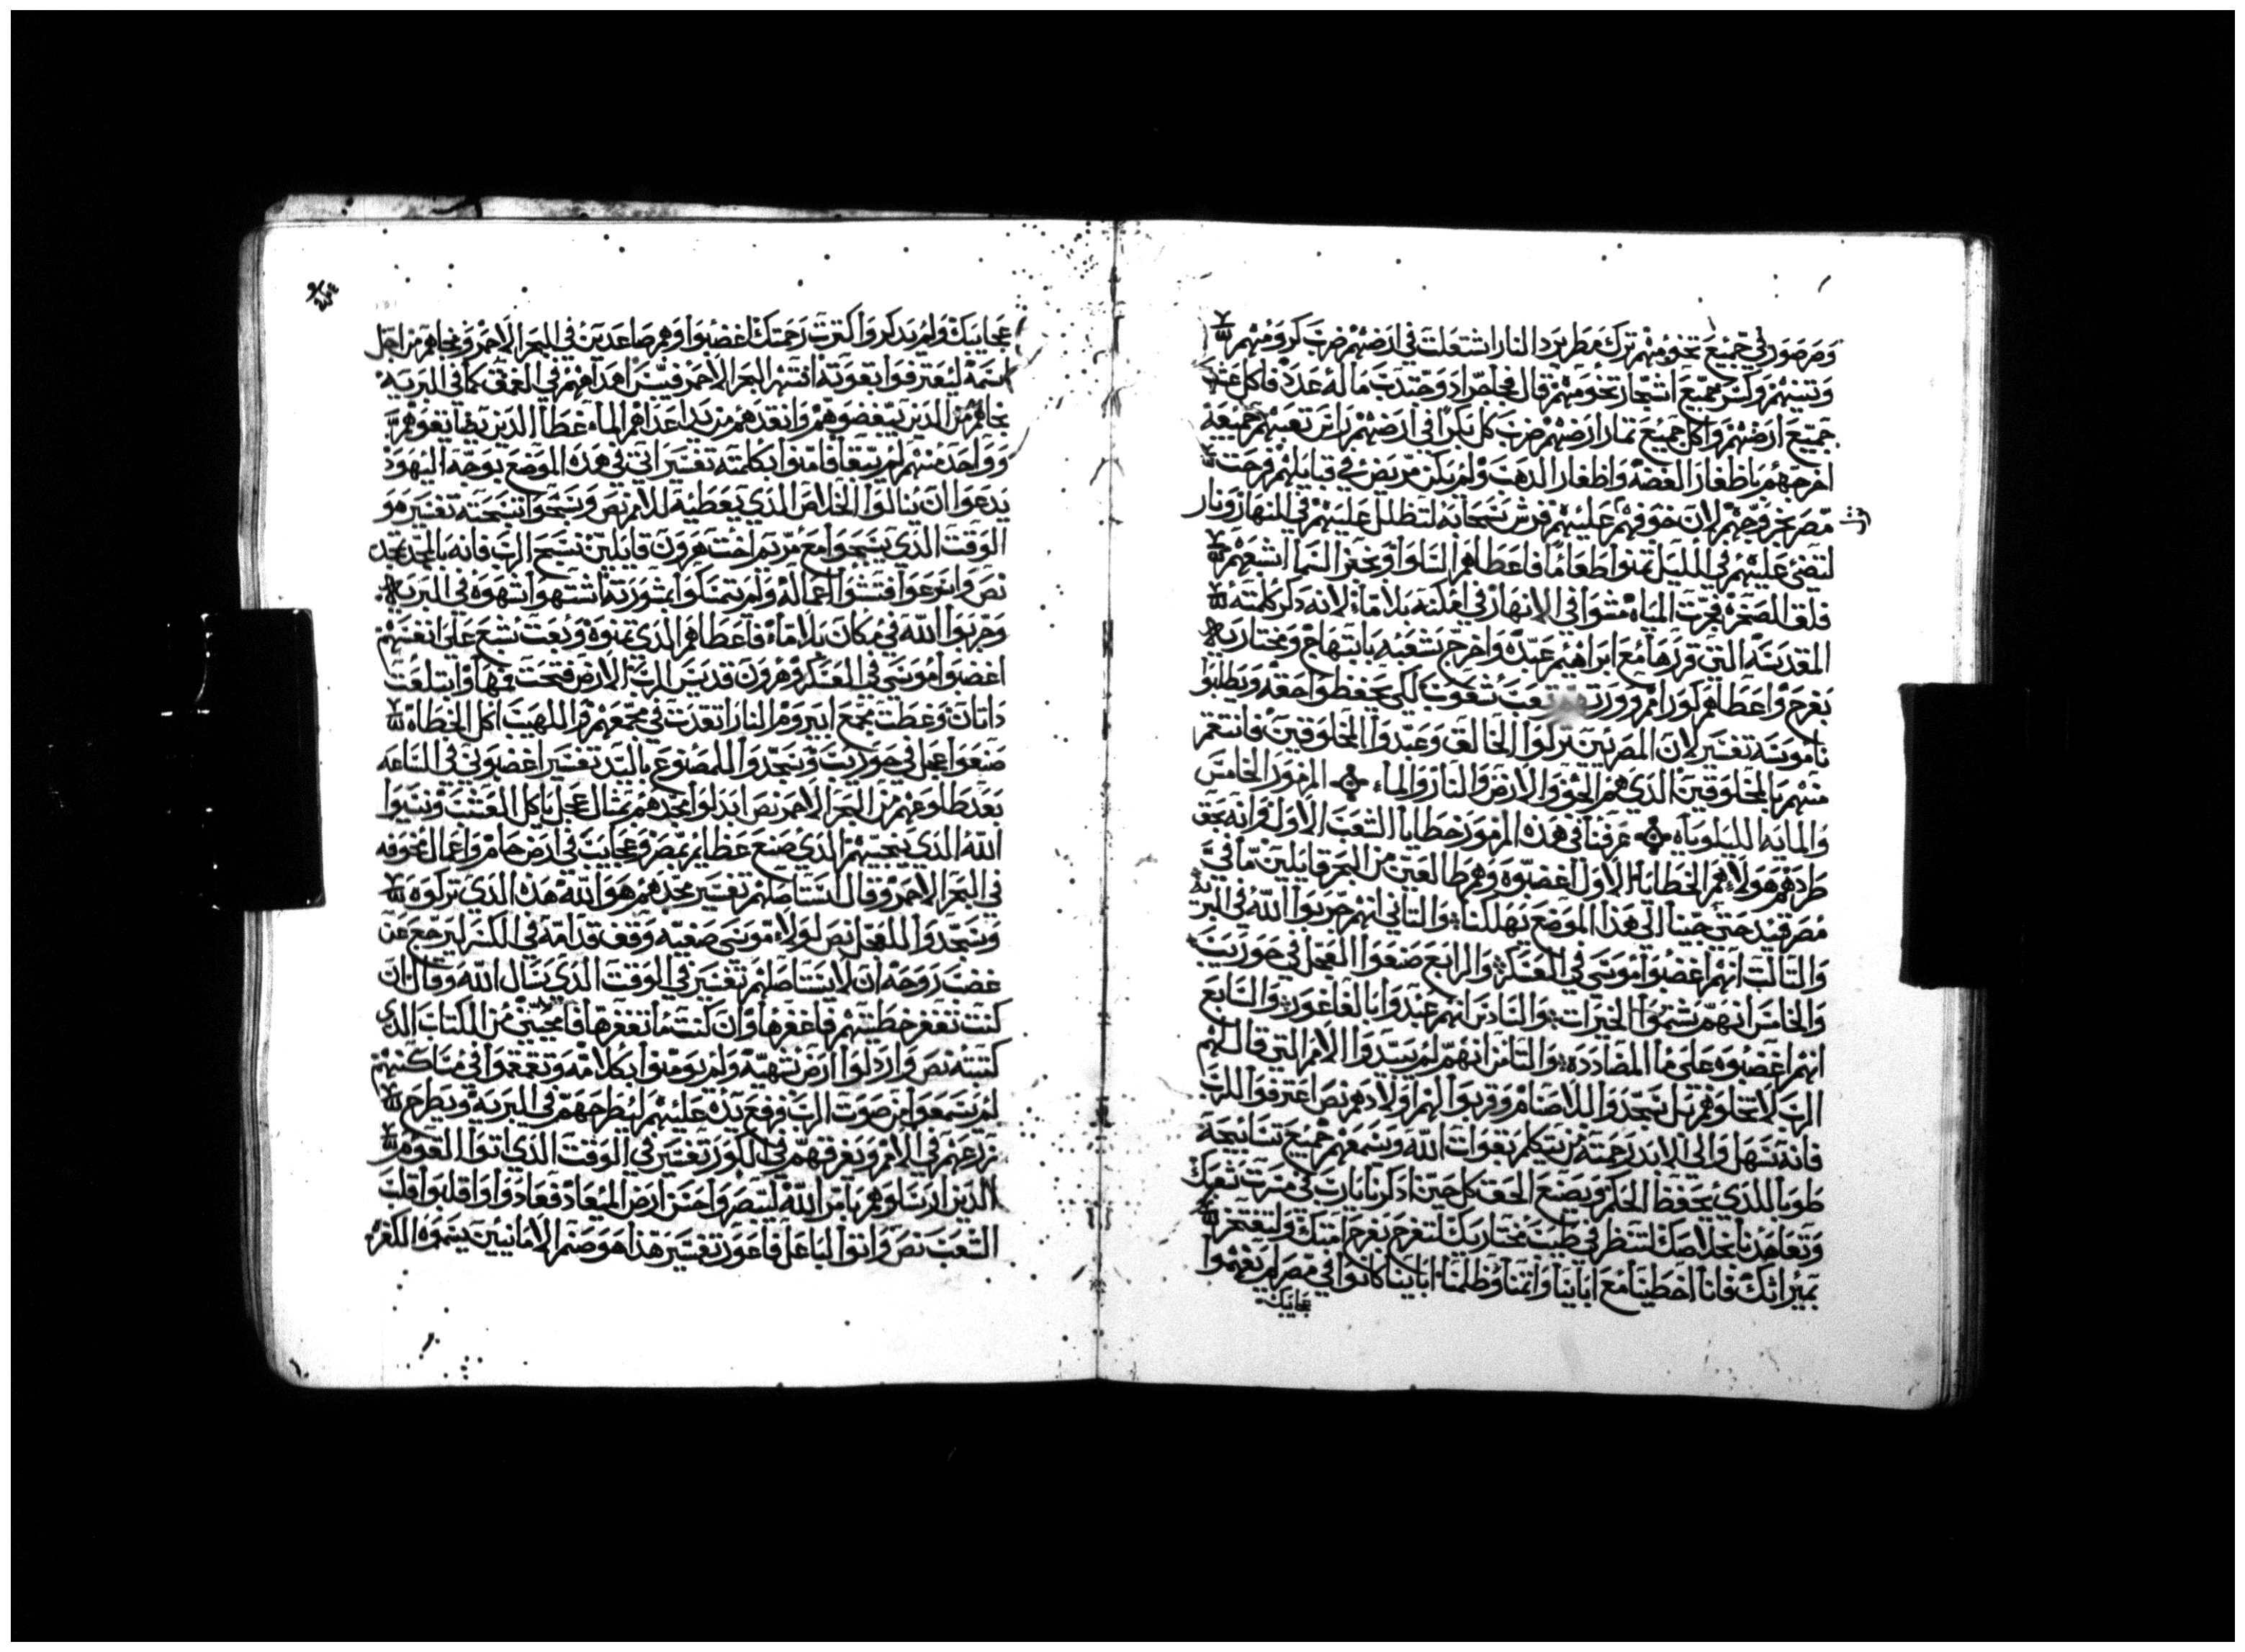 وصرصور في جميع تخومهم ترك مطر برد النار اشتعلت في ارضهم ضرب كرومهم
وتينهم وكسر جميع اشجار تخومهم قال فجا جراد وجندب ماله عدد فاكل عشب
جميع ارضهم واكل جميع تمار ارضهم ضرب كل بكرا في ارضهم راس تعبهم جميعه
اخرجهم باظفار الفضه واظفار الدهب ولم يكن مريض في قبايلهم فرحت
مصر بخروجهم لان خوفهم عليهم فرش سحابه لتظلل عليهم في النهار ونار
لتضي عليهم في الليل تمنوا طعاما فاعطاهم السلوا وخبز السما اشبعهم
فلق الصخره فجرت المياه مشوا في الانهار في امكنه بلا ماء لانه دكر كلمته
المقدسه التي قررها مع ابراهيم عبده واخرج شعبه بابتهاج ومختاريه
بفرح واعطاهم كور امم وورت تعب شعوب لكي يحفظوا حقه ويطلبوا
ناموسه تفسير لان المصريين تركوا الخالق وعبدوا المخلوقين فانتقم
منهم بالمخلوقين الدي هم الجو والارض والنار والماء المزمور الخامس
والمايه الليلوياه عرفنا في هذه المزمور خطايا الشعب الاول وانه بحق
طردهم هولاء هم الخطايا الاول اغضبوه وهم طالعين من البحر قايلين ما في
مصر قبور حتى جبتنا الى هذا الموضع بهلكنا والتاني انهم جربوا الله في البريه
والتالت انهم اغضبوا موسى في العسكر والرابع صنعوا العجل في حوريب
والخامس انهم شتموا الخيرات والسادس انهم عبدوا باالفاغور والسابع
انهم اغضبوه على ما المضادده والتامن انهم لم يبيدوا الامم التي قال لهم
الرب لا تخلوهم بل سجدوا للاصنام وقربوا لهم اولادهم نص اعترفوا للرب
فانه سهل والى الابد رحمته من يتكلم بقوات الله ويسمعهم جميع تسابيحه
طوبا للدي يحفظ الحكم ويصنع الحق كل حين ادكرنا يا رب في مسرت شعبك
وتعاهدنا بخلاصك لننظر في طيب مختاريك لنفرح بفرح امتك ولنفتخر
بميراتك فانا اخطينا مع اباينا واتمنا وظلمنا اباينا كانوا في مصر لم يفهموا
عجايبك
عجايبك ولم يدكروا كترت رحمتك اغضبوا وهم صاعدين في البحر الاحمر ونجاهم من اجل
اسمه ليعترفوا بقوته انتهر البحر الاحمر فيبس اهداهم في العمق كما في البريه
نجاهم من الدين يبغضوهم وانقدهم من يد اعداهم الماء غطا الدين يضايقوهم
وواحد منهم لم يبقا فامنوا بكلمته تفسير اتي في هده الموضع بوجه اليهود
يدعوا ان ينالوا الخلاص الدي يعطيه للامم نص وسبحوا تسبحته تفسير هو
الوقت الدي سبحوا مع مريم اخت هرون قايلين نسبح الرب فانه بالمجد تمجد
نص واسرعوا فنسوا اعماله ولم يتمسكوا بمشورته اشتهوا شهوه في البريه
وجربوا الله في مكان بلا ماء فاعطاهم الدي تمنوه وبعت شبع على انفسهم
اغضبوا موسى في العسكر وهرون قديس الرب الارض فتحت فمها وابتلعت
داتان وغطت مجمع ابيروم النار اتقدت في مجمعهم واللهيب اكل الخطاه
صنعوا عجل في حوريب وسجدوا للمصنوع باليد تفسير اغضبوني في الساعه
بعد طلوعهم من البحر الاحمر نص ابدلوا مجدهم بمثال عجل ياكل العشب ونسيوا
الله الدي ينجيهم الدي صنع عظايم بمصر وعجايب في ارض حام واعمال مخوفه
في البحر الاحمر وقال ليستاصلهم تفسير مجدهم هو الله هدا الدي تركوه
وسجدوا للعجل نص لولا موسى صفيه وقف قدامه في الكسر ليرجع عن
غضب روحه ان لا يستاصلهم تفسير في الوقت الدي سال الله وقال ان
كنت تغفر خطيتهم فاغفرها وان كنت ما تغفرها فامحيني من الكتاب الدي
كتبته نص واردلوا ارض شهيه ولم يومنوا بكلامه وتقمقموا في مساكنهم
لم يسمعوا من صوت الرب ورفع يده عليهم ليطرحهم في البريه ويطرح
زرعهم في الامم ويفرقهم في الكور تفسير في الوقت الدي اتوا القوم
الدين ارسلوهم بامر الله لتبصروا حسن ارض الميعاد فعادوا واقلبوا قلب
الشعب نص واتوا لباعل فاغور تفسير هذا هو صنم الامانيين يسموه الكفره